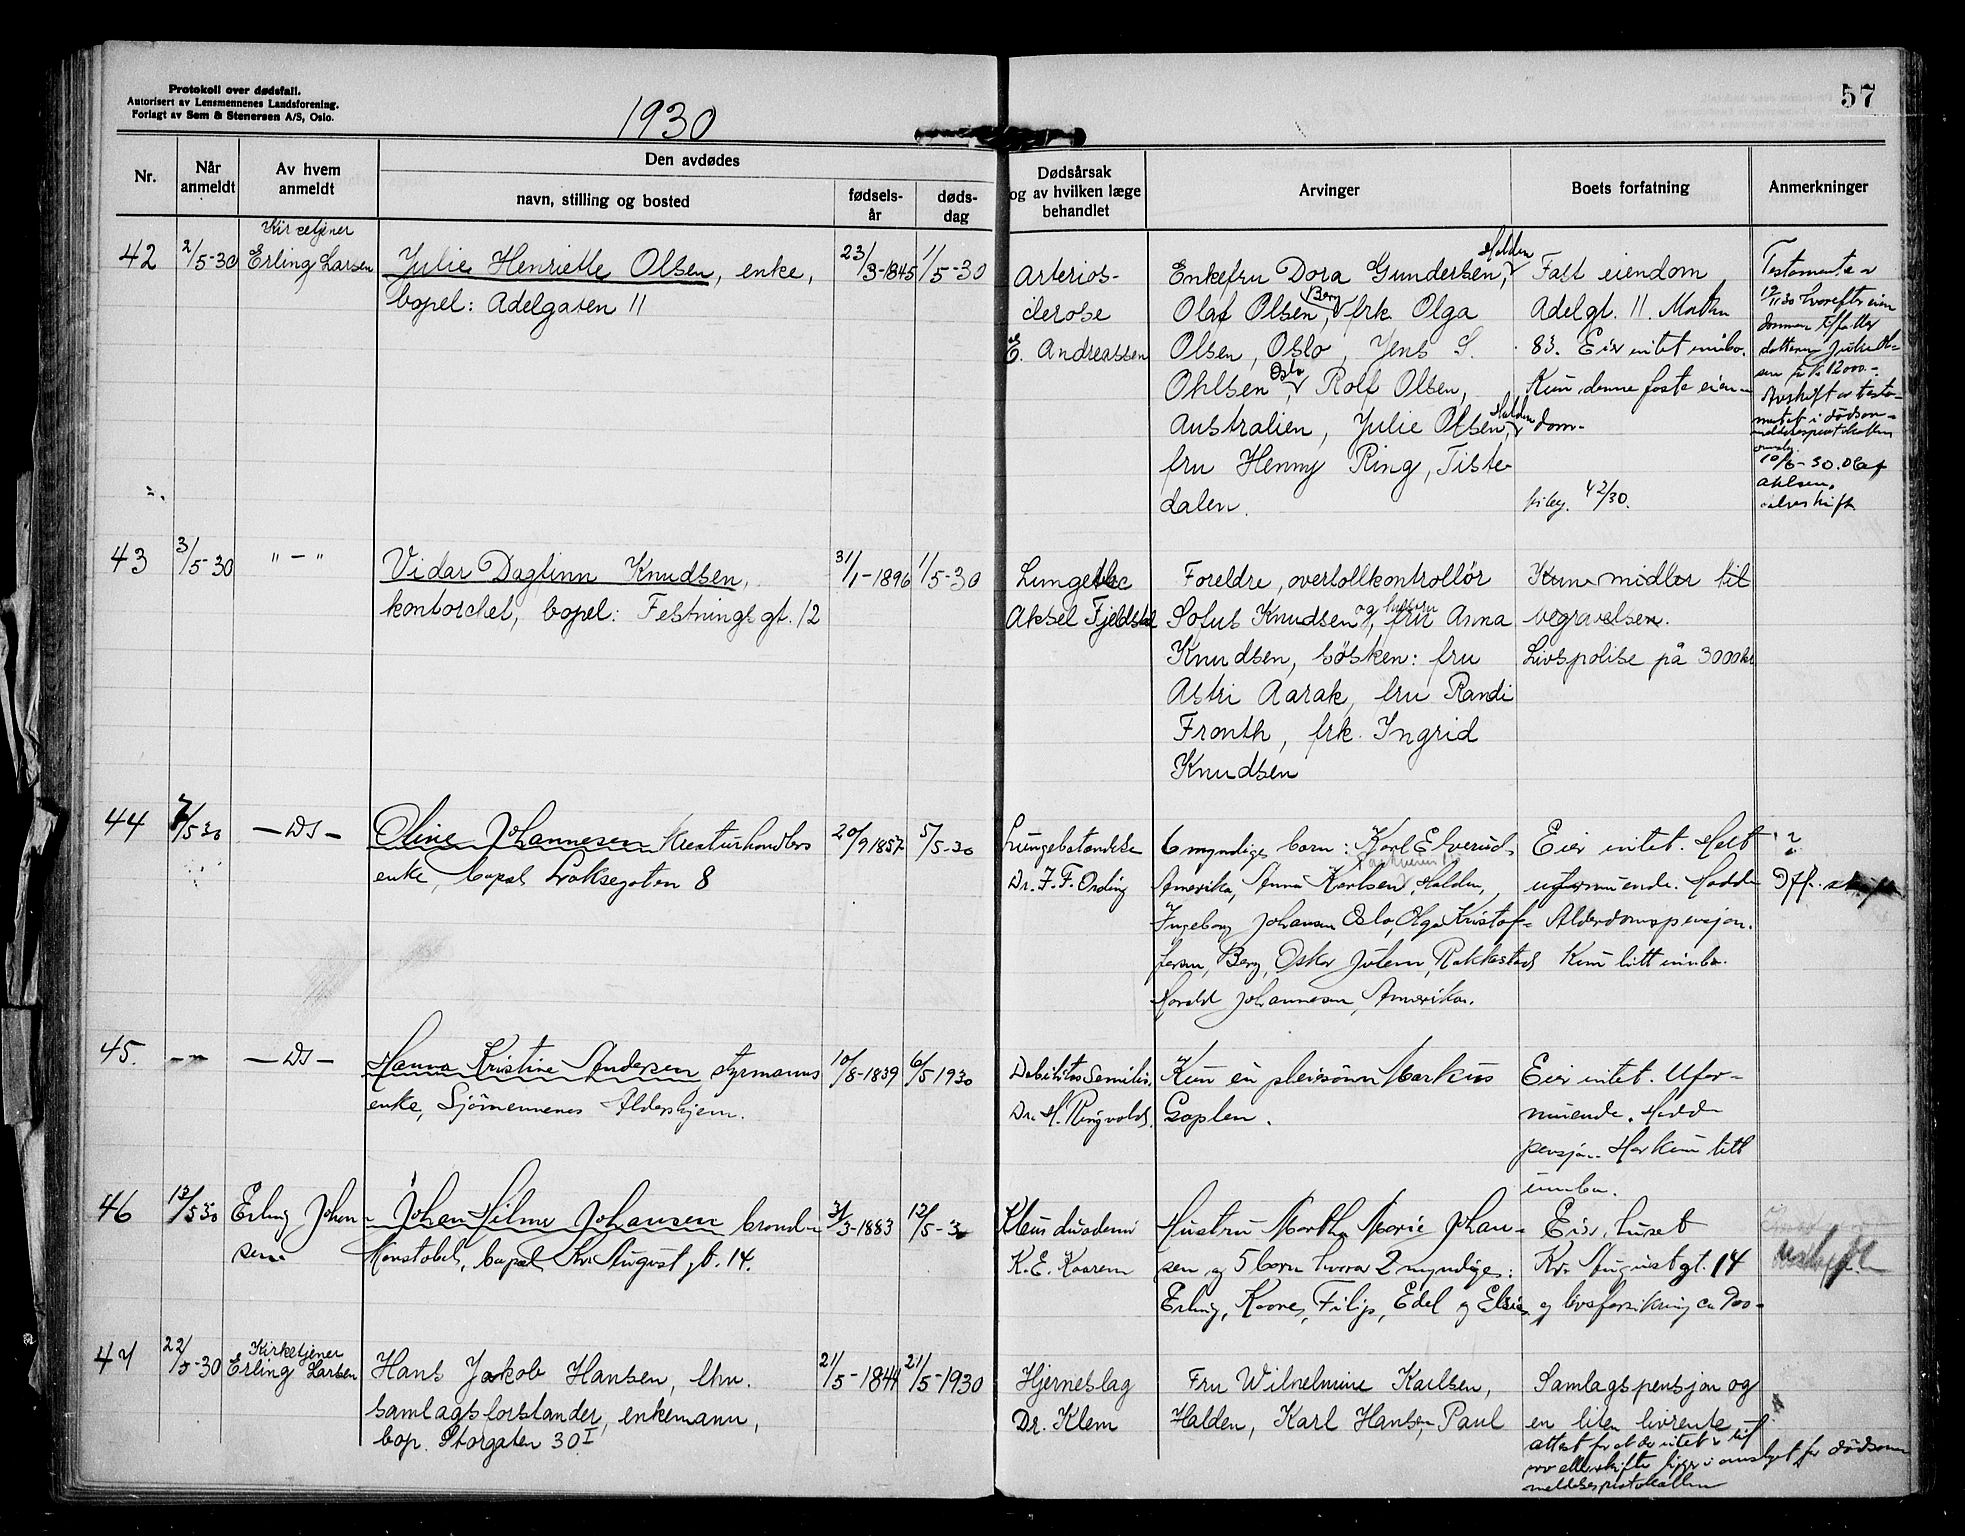 Protokoll over dødsfall.
Autorisert av Lensmennenes Landsforening.
Forlagt av Sem & Stenersen A/S, Oslo.
1930
57
Nr.
Når anmeldt
Av hvem anmeldt
Den avdødes
navn, stilling og bosted
fødsels-år
døds-dag
Dødsårsak og av hvilken læge behandlet
Arvinger
Boets forfatning
Anmerkninger
42
2/5-30
Kirketjener
Erling Larsen
Julie Henriette Olsen, enke,
bopel: Adelgaten 11
23/3-1845
1/5-30
Arterios-
clerose
E. Andreassen
Enkefru Dora Gundersen, Halden
Olaf Olsen, Berg, frk. Olga
Olsen, Oslo, Jens S.
Ohlsen, Oslo, Rolf Olsen,
Australien, Julie Olsen, Halden
fru Henny Ring, Tiste-
dalen.
Fast eiendom
Adelgt. 11. Matrn
83. Eier intet innbo.
Kun denne faste eien-
dom.
42/30.
Testamente
hvorefter eien
dommen
datteren Julie Ol-
sen for kr. 12000.-
Avskrift av testa-
mentet i dødsan-
meldelsesprotokollen
10/6-30. Olaf
Ohlsen.
43
3/5-30
" - "
Vidar Dagfinn Knudsen,
kontorchef, bopel: Festningsgt. 12
31/1-1896
1/5-30
Lungetbc
Aksel Fjeldstad
Foreldre, overtollkontrollør
Sofus Knudsen og hustru, fru Anna
Knudsen, søsken: fru
Astri Aarak, fru Randi
Fronth, frk. Ingrid
Knudsen
Kun midler til
begravelsen.
Livspolise på 3000 kr
44
7/5 30
— Ds —
Oline Johannesen kreaturhandlers
enke, bopel Laksegaten 8
20/9 1857
5/5-30
Lungebetendelse
Dr. F. F. Ording
6 myndige barn: Karl Elverud,
Amerika, Anna Karlsen, Halden,
Ingeborg Johansen Oslo, Olga Kristof-
fersen, Berg, Oskar Julem, Rakkestad
Harald Johannesen, Amerika.
Eier intet. Helt
uformuende. Hadde
Alderdomspensjon.
Kun litt innbo.
?
45.
— " —
— Ds —
Hanna Kristine Andersen styrmanns
enke, Sjømennenes Aldershjem.
10/8-1839
6/5 1930
Debilitas Senilis,
Dr. H. Ringvold.
Kun en pleiesønn Markus
Goplen.
Eier intet. Ufor-
muende. Hadde
pensjon. Har kun litt
innbo.
46
13/5 30
Erling Johan-
sen
Johan Hilmar Johansen brand-
konstabel, bopel Kr. August gt. 14.
31/3-1883
12/5-30
Ulcus duodeni
K. E. Kaarem
Hustru Martha Marie Johan-
sen og 5 barn hvorav 2 myndige:
Erling, Kaare, Filip, Edel og Elsie
Eier huset
Kr. August gt. 14
og livsforsikring ca 900-
Uskifte
47
22/5-30
Kirketjener
Erling Larsen
Hans Jakob Hansen, fhv.
samlagsforstander, enkemann,
bop. Storgaten 30 I
21/5-1844
21/5-1930
Hjerneslag
Dr. Klem
Fru Wilhelmine Karlsen,
Halden, Karl Hansen, Paul
Samlagspensjon og
en liten livrente
attest for at der intet er til
arv eller skifte ligger i omslaget for dødsan-
meldelsesprotokollen